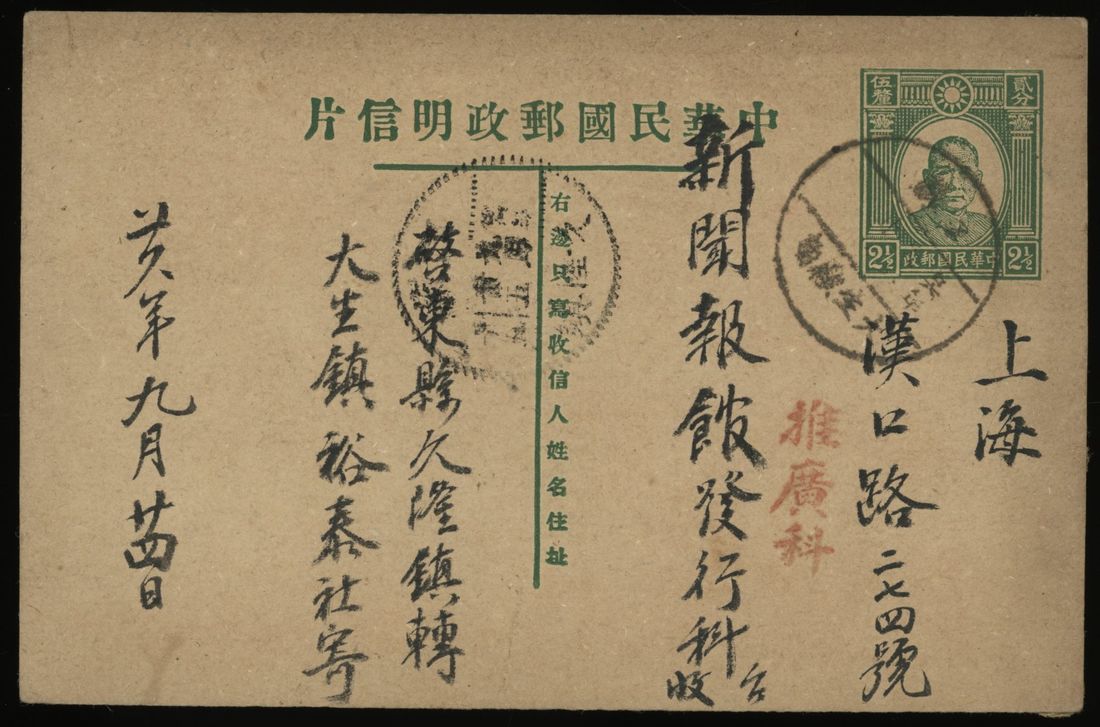 中華民國郵政明信片
貳分
伍釐
中華民國郵政
2½
2½
上海
漢口路二七四號
推廣科
新聞報館發行科
台收
右邊只寫收信人姓名住址
啓東縣久隆鎮轉
大生鎮裕泰社寄
廿八年九月廿四日